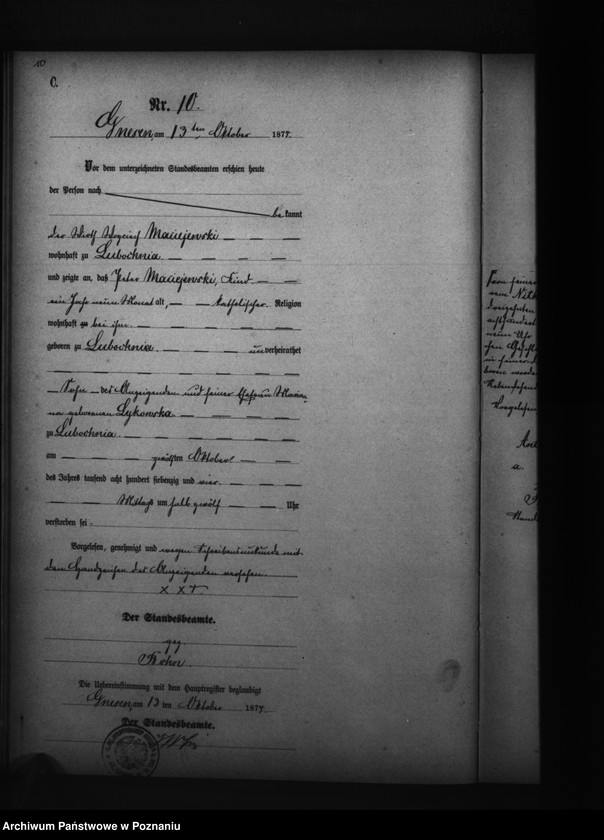 10
C.
Nr. 10.
Gnesen, am 13ten Oktober 1877
Vor dem unterzeichneten Standesbeamten erschien heute
der Person nach
bekannt
der Wirth Woyciech Maciejewski
wohnhaft zu Lubochnia
und zeigte an, daß Peter Maciejewski, Kind
ein Jahr neun Monat alt, katholischer Religion
wohnhaft zu bei ihm
geboren zu Lubochnia unverheirathet
Sohn des Anzeigenden und seiner Ehefrau Marian
na geborenen Lykowska
zu Lubochnia
am Oktober
des Jahrs tausend acht hundert siebenzig und
Mittags um halb zwölf Uhr
verstorben sei
Vorgelesen, genehmigt und wegen Schreibensunkunde mit
dem Handzeichen des Anzeigenden versehen.
X X +
Der Standesbeamte.
gez.
Die Uebereinstimmung mit dem Hauptregister beglaubigt
Gnesen, am 13ten Oktober 1877
Der Standesbeamte.
Vorgelesen
Archiwum Państwowe w Poznaniu